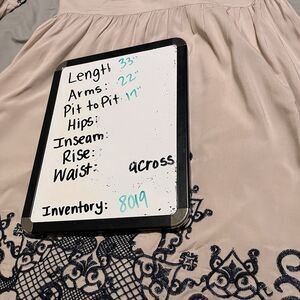 Length 33"
Arms: 22"
Pit to Pit: 17"
Hips:
Inseam:
Rise:
Waist: across
Inventory: 8019